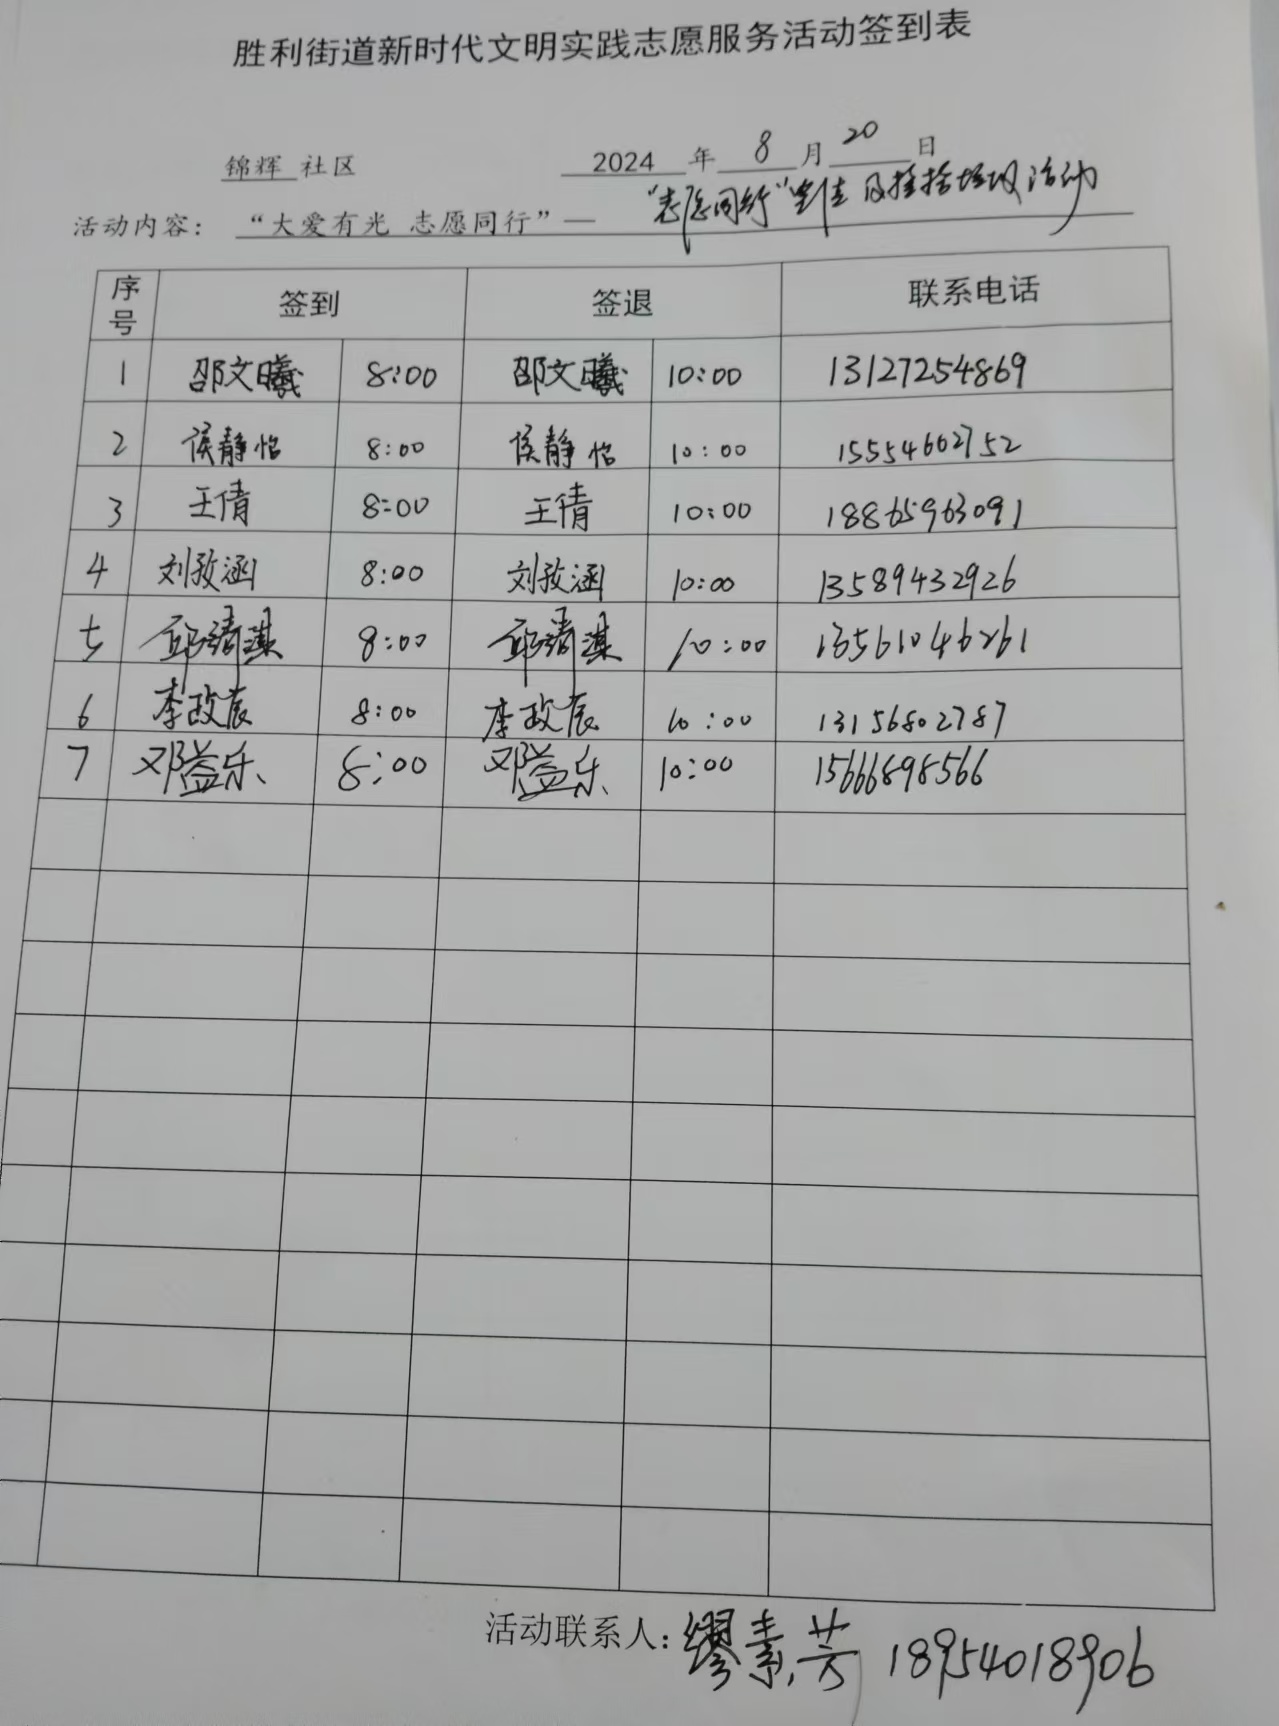 胜利街道新时代文明实践志愿服务活动签到表
锦辉 社区 2024 年 8 月 20 日
活动内容： “大爱有光 志愿同行”— “志愿同行” 及捡拾垃圾活动
序号 签到 签退 联系电话
1 邵文曦 8:00 邵文曦 10:00 13127254869
2 侯静怡 8:00 侯静怡 10:00 15554602752
3 王倩 8:00 王倩 10:00 18865963091
4 刘孜涵 8:00 刘孜涵 10:00 13589432926
5 邱靖淇 8:00 邱靖淇 10:00 13561046261
6 李政辰 8:00 李政辰 10:00 13156802787
7 邓益乐 8:00 邓益乐 10:00 15666898566
活动联系人：缪素芳 18954018906